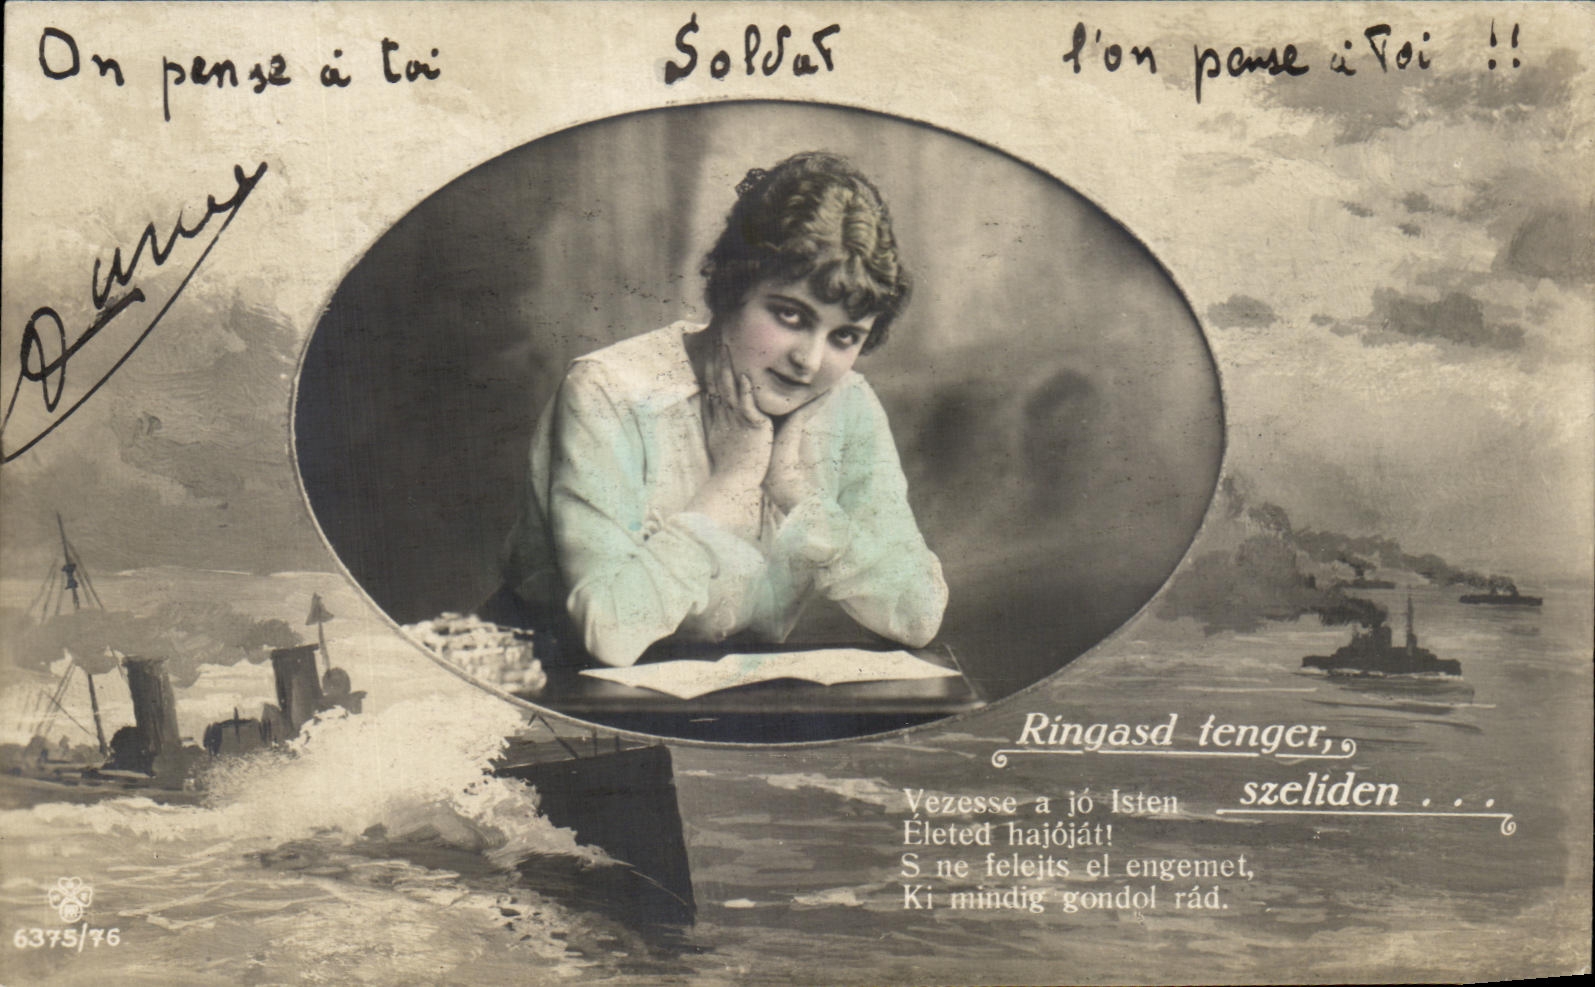 On pense à toi Soldat l'on pense à toi !!
Ringasd tenger,
szeliden . . .
Vezesse a jó Isten
Életed hajóját!
S ne felejts el engemet,
Ki mindig gondol rád.
6375/76